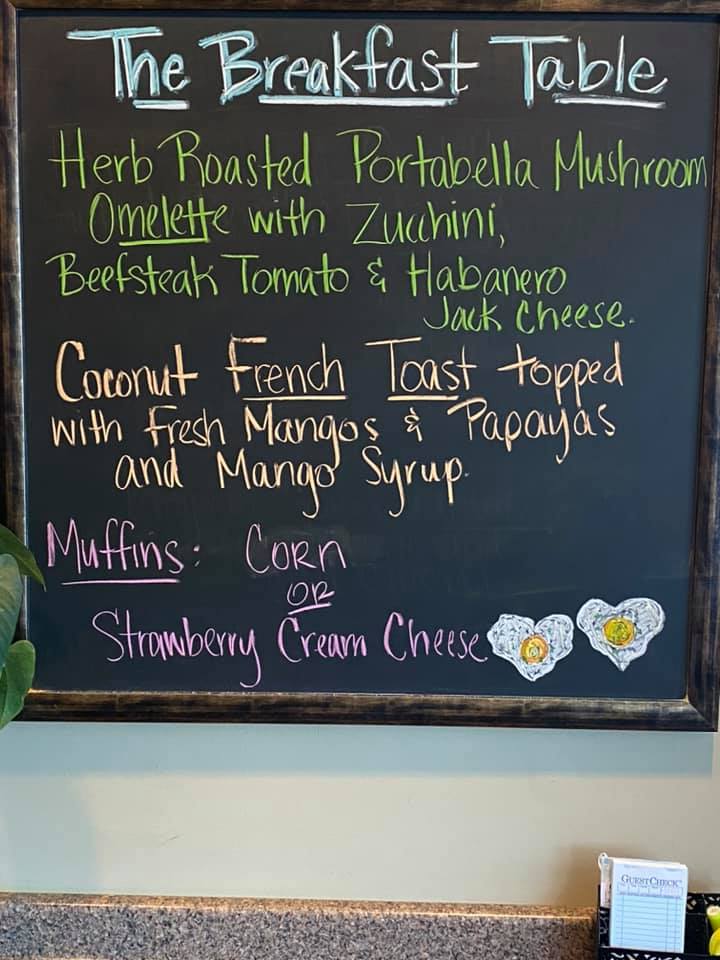 The Breakfast Table
Herb Roasted Portabella Mushroom
Omelette with Zucchini,
Beefsteak Tomato & Habanero
Jack Cheese.
Coconut French Toast topped
with Fresh Mangos & Papayas
and Mango Syrup.
Muffins: Corn
OR
Strawberry Cream Cheese
GUEST CHECK